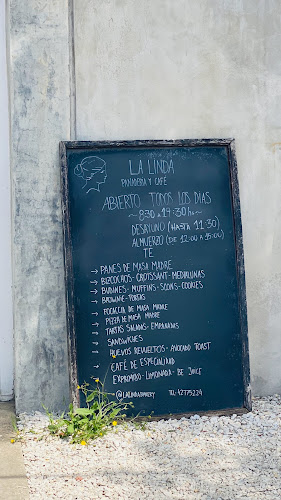 LA LINDA
PANADERIA Y CAFÉ
ABIERTO TODOS LOS DIAS
~ 8:30 a 19:30 hs ~
DESAYUNO (HASTA 11:30)
ALMUERZO (DE 12:00 A 15:00)
TE
→ PANES DE MASA MADRE
→ BIZCOCHOS - CROISSANT - MEDIALUNAS
→ BUDINES - MUFFINS - SCONS - COOKIES
→ BROWNIE - TORTAS
→ FOCACCIA DE MASA MADRE
→ PIZZA DE MASA MADRE
→ TARTAS SALADAS - EMPANADAS
→ SANDWICHES
→ HUEVOS REVUELTOS - AVOCADO TOAST
→ CAFÉ DE ESPECIALIDAD
EXPRIMIDO - LIMONADA - BE JUICE
@LALINDABAKERY TEL: 42775224